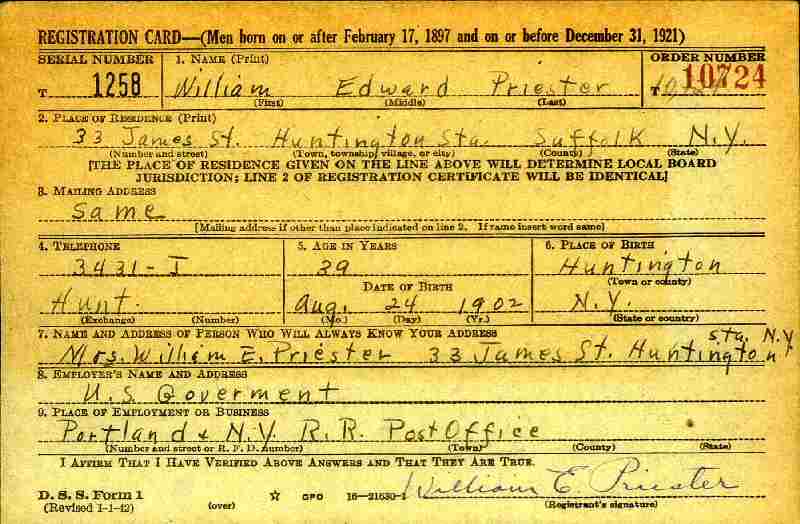 REGISTRATION CARD—(Men born on or after February 17, 1897 and on or before December 31, 1921)
SERIAL NUMBER 1. NAME (Print) ORDER NUMBER
T 1258 William Edward Priester T 10724
(First) (Middle) (Last)
2. PLACE OF RESIDENCE (Print)
33 James St. Huntington Sta. Suffolk N.Y.
(Number and street) (Town, township, village, or city) (County) (State)
[THE PLACE OF RESIDENCE GIVEN ON THE LINE ABOVE WILL DETERMINE LOCAL BOARD
JURISDICTION; LINE 2 OF REGISTRATION CERTIFICATE WILL BE IDENTICAL]
3. MAILING ADDRESS
Same
[Mailing address if other than place indicated on line 2. If same insert word same]
4. TELEPHONE 5. AGE IN YEARS 6. PLACE OF BIRTH
3431-J 39 Huntington
DATE OF BIRTH (Town or county)
Hunt. Aug. 24 1902 N.Y.
(Exchange) (Number) (Mo.) (Day) (Yr.) (State or country)
7. NAME AND ADDRESS OF PERSON WHO WILL ALWAYS KNOW YOUR ADDRESS
Mrs. William E. Priester 33 James St. Huntington Sta. N.Y.
8. EMPLOYER'S NAME AND ADDRESS
U.S. Goverment
9. PLACE OF EMPLOYMENT OR BUSINESS
Portland & N.Y. R.R. Post Office
(Number and street or R. F. D. number) (Town) (County) (State)
I AFFIRM THAT I HAVE VERIFIED ABOVE ANSWERS AND THAT THEY ARE TRUE.
William E Priester
D. S. S. Form 1 (over) ☆ GPO 16—21630-1 (Registrant's signature)
(Revised 1-1-42)